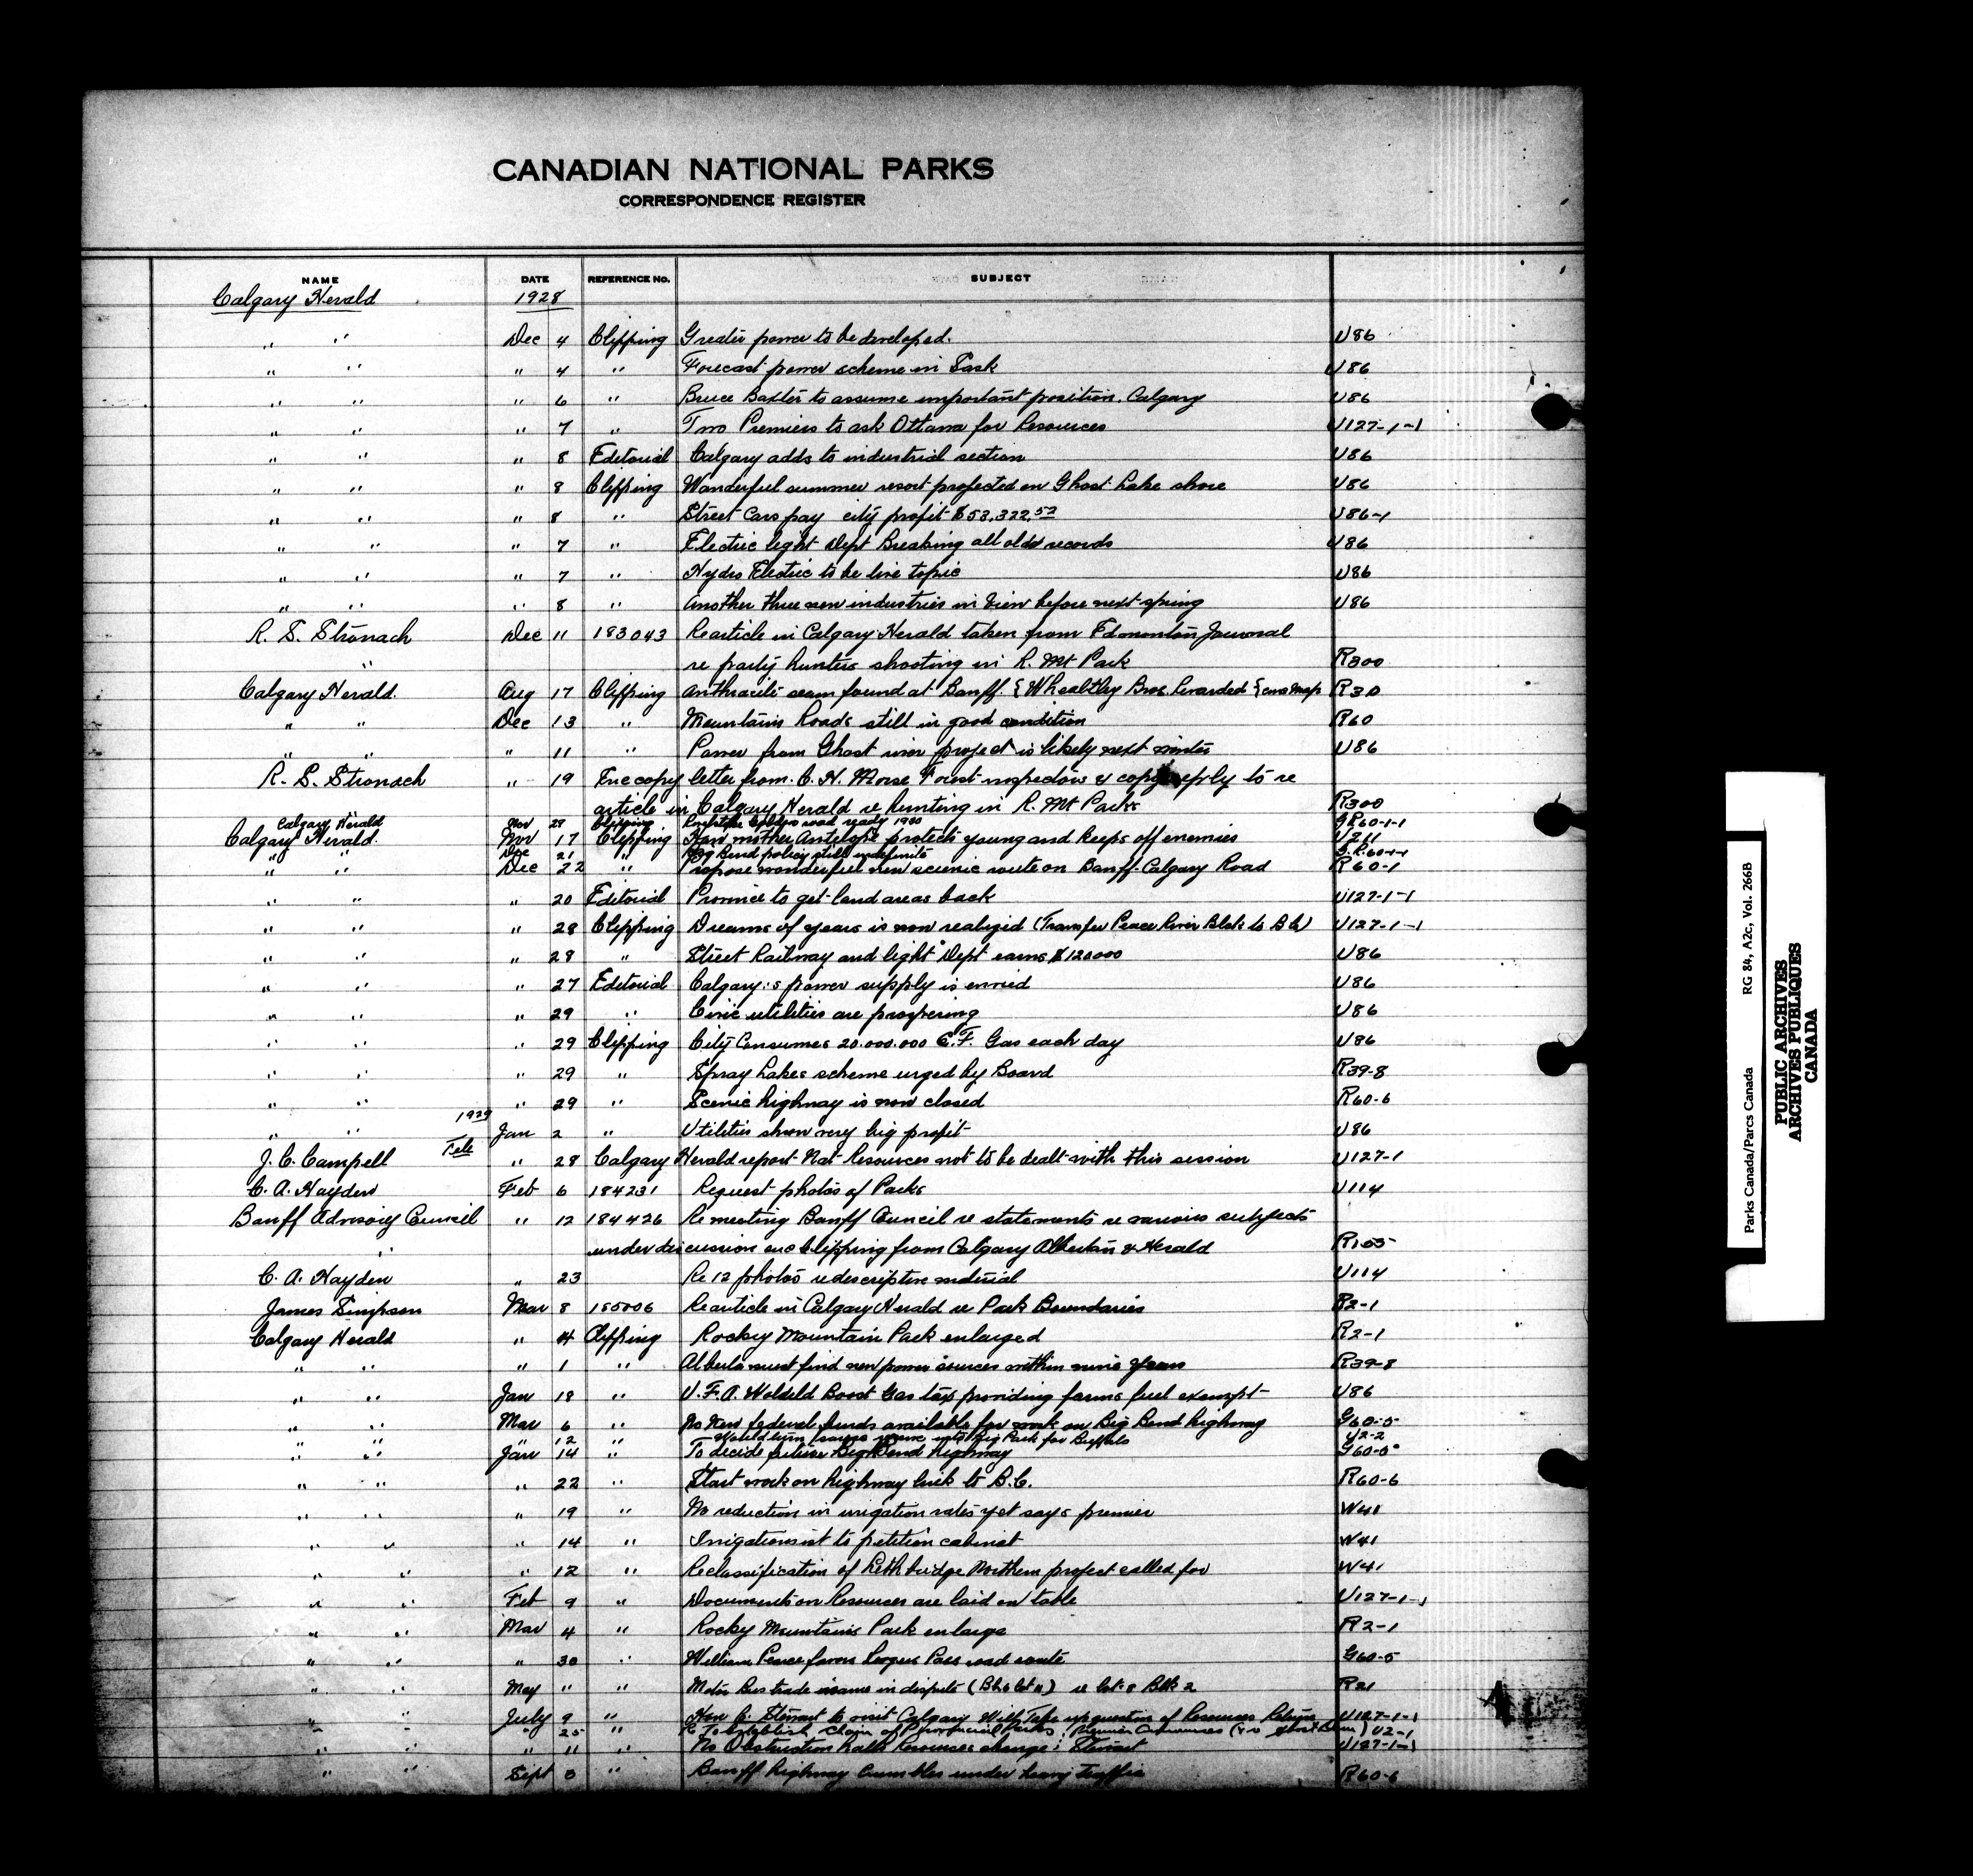 CANADIAN NATIONAL PARKS
CORRESPONDENCE REGISTER
NAME DATE REFERENCE No. SUBJECT
Calgary Herald 1928
" " Dec 4 Clipping Greater power to be developed. U86
" " " 4 " Forecast power scheme in Sask U86
" " " 6 " Bruce Baxter to assume important position. Calgary U86
" " " 7 " Two Premiers to ask Ottawa for Resources U127-1-1
" " " 8 Editorial Calgary adds to industrial section U86
" " " 8 Clipping Wonderful summer resort projected on Ghost Lake shore U86
" " " 8 " Street Cars pay city profit $53,322.53 U86-1
" " " 7 " Electric light Dept Breaking all old records U86
" " " 7 " Hydro Electric to be live topic U86
" " " 8 " Another three new industries in View before next spring U86
R. S. Stronach Dec 11 183043 Re article in Calgary Herald taken from Edmonton Journal
" re party hunters shooting in R. Mt Park R300
Calgary Herald. Aug 17 Clipping Anthracite seam found at Banff. { Whealtley Bros. Rewarded { enc map R30
" " Dec 13 " Mountains Roads still in good condition R60
" " " 11 " Power from Ghost river project is likely next winter U86
R. S. Stronach " 19 Enc copy letter from C. H. Morse Forest inspector & copy reply to re
article in Calgary Herald re hunting in R. Mt Parks R300
Calgary Herald Nov 28 Clipping Golden road ready 1930 G R60-1-1
Calgary Herald. Nov 17 Clipping How mother Antelope protects young and keeps off enemies U211
Dec 21 " Big Bend policy still indefinite G.R.60-1-1
" " Dec 22 " Propose wonderful new scenic route on Banff-Calgary Road R60-1
" " " 20 Editorial Province to get land areas back U127-1-1
" " " 28 Clipping Dreams of years is now realized (Transfer Peace River Block to B C) U127-1-1
" " " 28 " Street Railway and light Dept earns $120000 U86
" " " 27 Editorial Calgary's power supply is envied U86
" " " 29 " Civic utilities are prospering U86
" " " 29 Clipping City Consumes 20.000.000 C.F. Gas each day U86
" " " 29 " Spray Lakes scheme urged by Board R39-8
" " " 29 " Scenic highway is now closed R60-6
1929
" " Jan 2 " Utilities show very big profit U86
J. C. Campell Tele " 28 Calgary Herald report Nat Resources not to be dealt with this session U127-1
C. A. Hayden Feb 6 184231 Request photos of Parks U114
Banff Advisory Council " 12 184426 Re meeting Banff Council re statements re various subjects
" under discussion enc clipping from Calgary Albertan & Herald R155
C. A. Hayden " 23 Re 12 photos re descriptive material U114
James Simpson Mar 8 185006 Re article in Calgary Herald re Park Boundaries R2-1
Calgary Herald " 4 Clipping Rocky Mountain Park enlarged R2-1
" " " 1 " Alberta must find new power sources within nine years R39-8
" " Jan 18 " U.F.A. Boost Gas tax providing farms fuel exempt U86
" " Mar 6 " No New federal funds available for work on Big Bend highway G60-5
" " " 12 " Would turn into Big Park for Buffalo U2-2
" " Jan 14 " To decide future Big Bend highway G60-5
" " " 22 " Start work on highway link to B.C. R60-6
" " " 19 " No reduction in irrigation rates yet says premier W41
" " " 14 " Irrigationist to petition cabinet W41
" " " 12 " Reclassification of Lethbridge Northern project called for W41
" " Feb 9 " Documents on Resources are laid on table U127-1-1
" " Mar 4 " Rocky Mountains Park enlarge R2-1
" " " 30 " William Pearce favors Logers Pass road route G60-5
" " May 11 " Motor Bus trade in dispute re lot 8 Blk 2 R21
" " July 9 " Hon C. Stewart to visit Calgary Will Take up question of Resources Return U127-1-1
" " " 25 " Re To establish chain of Provincial Parks, Premier Announces U2-1
" " " 11 " No Obstruction halts Resources change: Stewart U127-1-1
" " Sept 5 " Banff highway Crumbles under heavy traffic R60-6
Parks Canada/Parcs Canada RG 84, A2c, Vol. 266B
PUBLIC ARCHIVES
ARCHIVES PUBLIQUES
CANADA